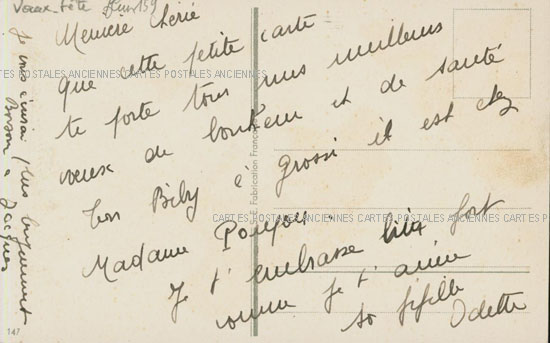 Voeux fête
Mémère Chérie
que cette petite carte
te porte tous mes meilleurs
voeux de bonheur et de santé
ton Biby a grossi il est chez
Madame
Je t'embrasse bien fort
comme je t'aime
ta fifille
Odette
Je vous
Jacques
Fabrication Française
147
CARTES POSTALES ANCIENNES CARTES POSTALES ANCIENNES CARTES POSTALES ANCIENNES
CARTES POSTALES ANCIENNES CARTES POSTALES ANCIENNES CARTES